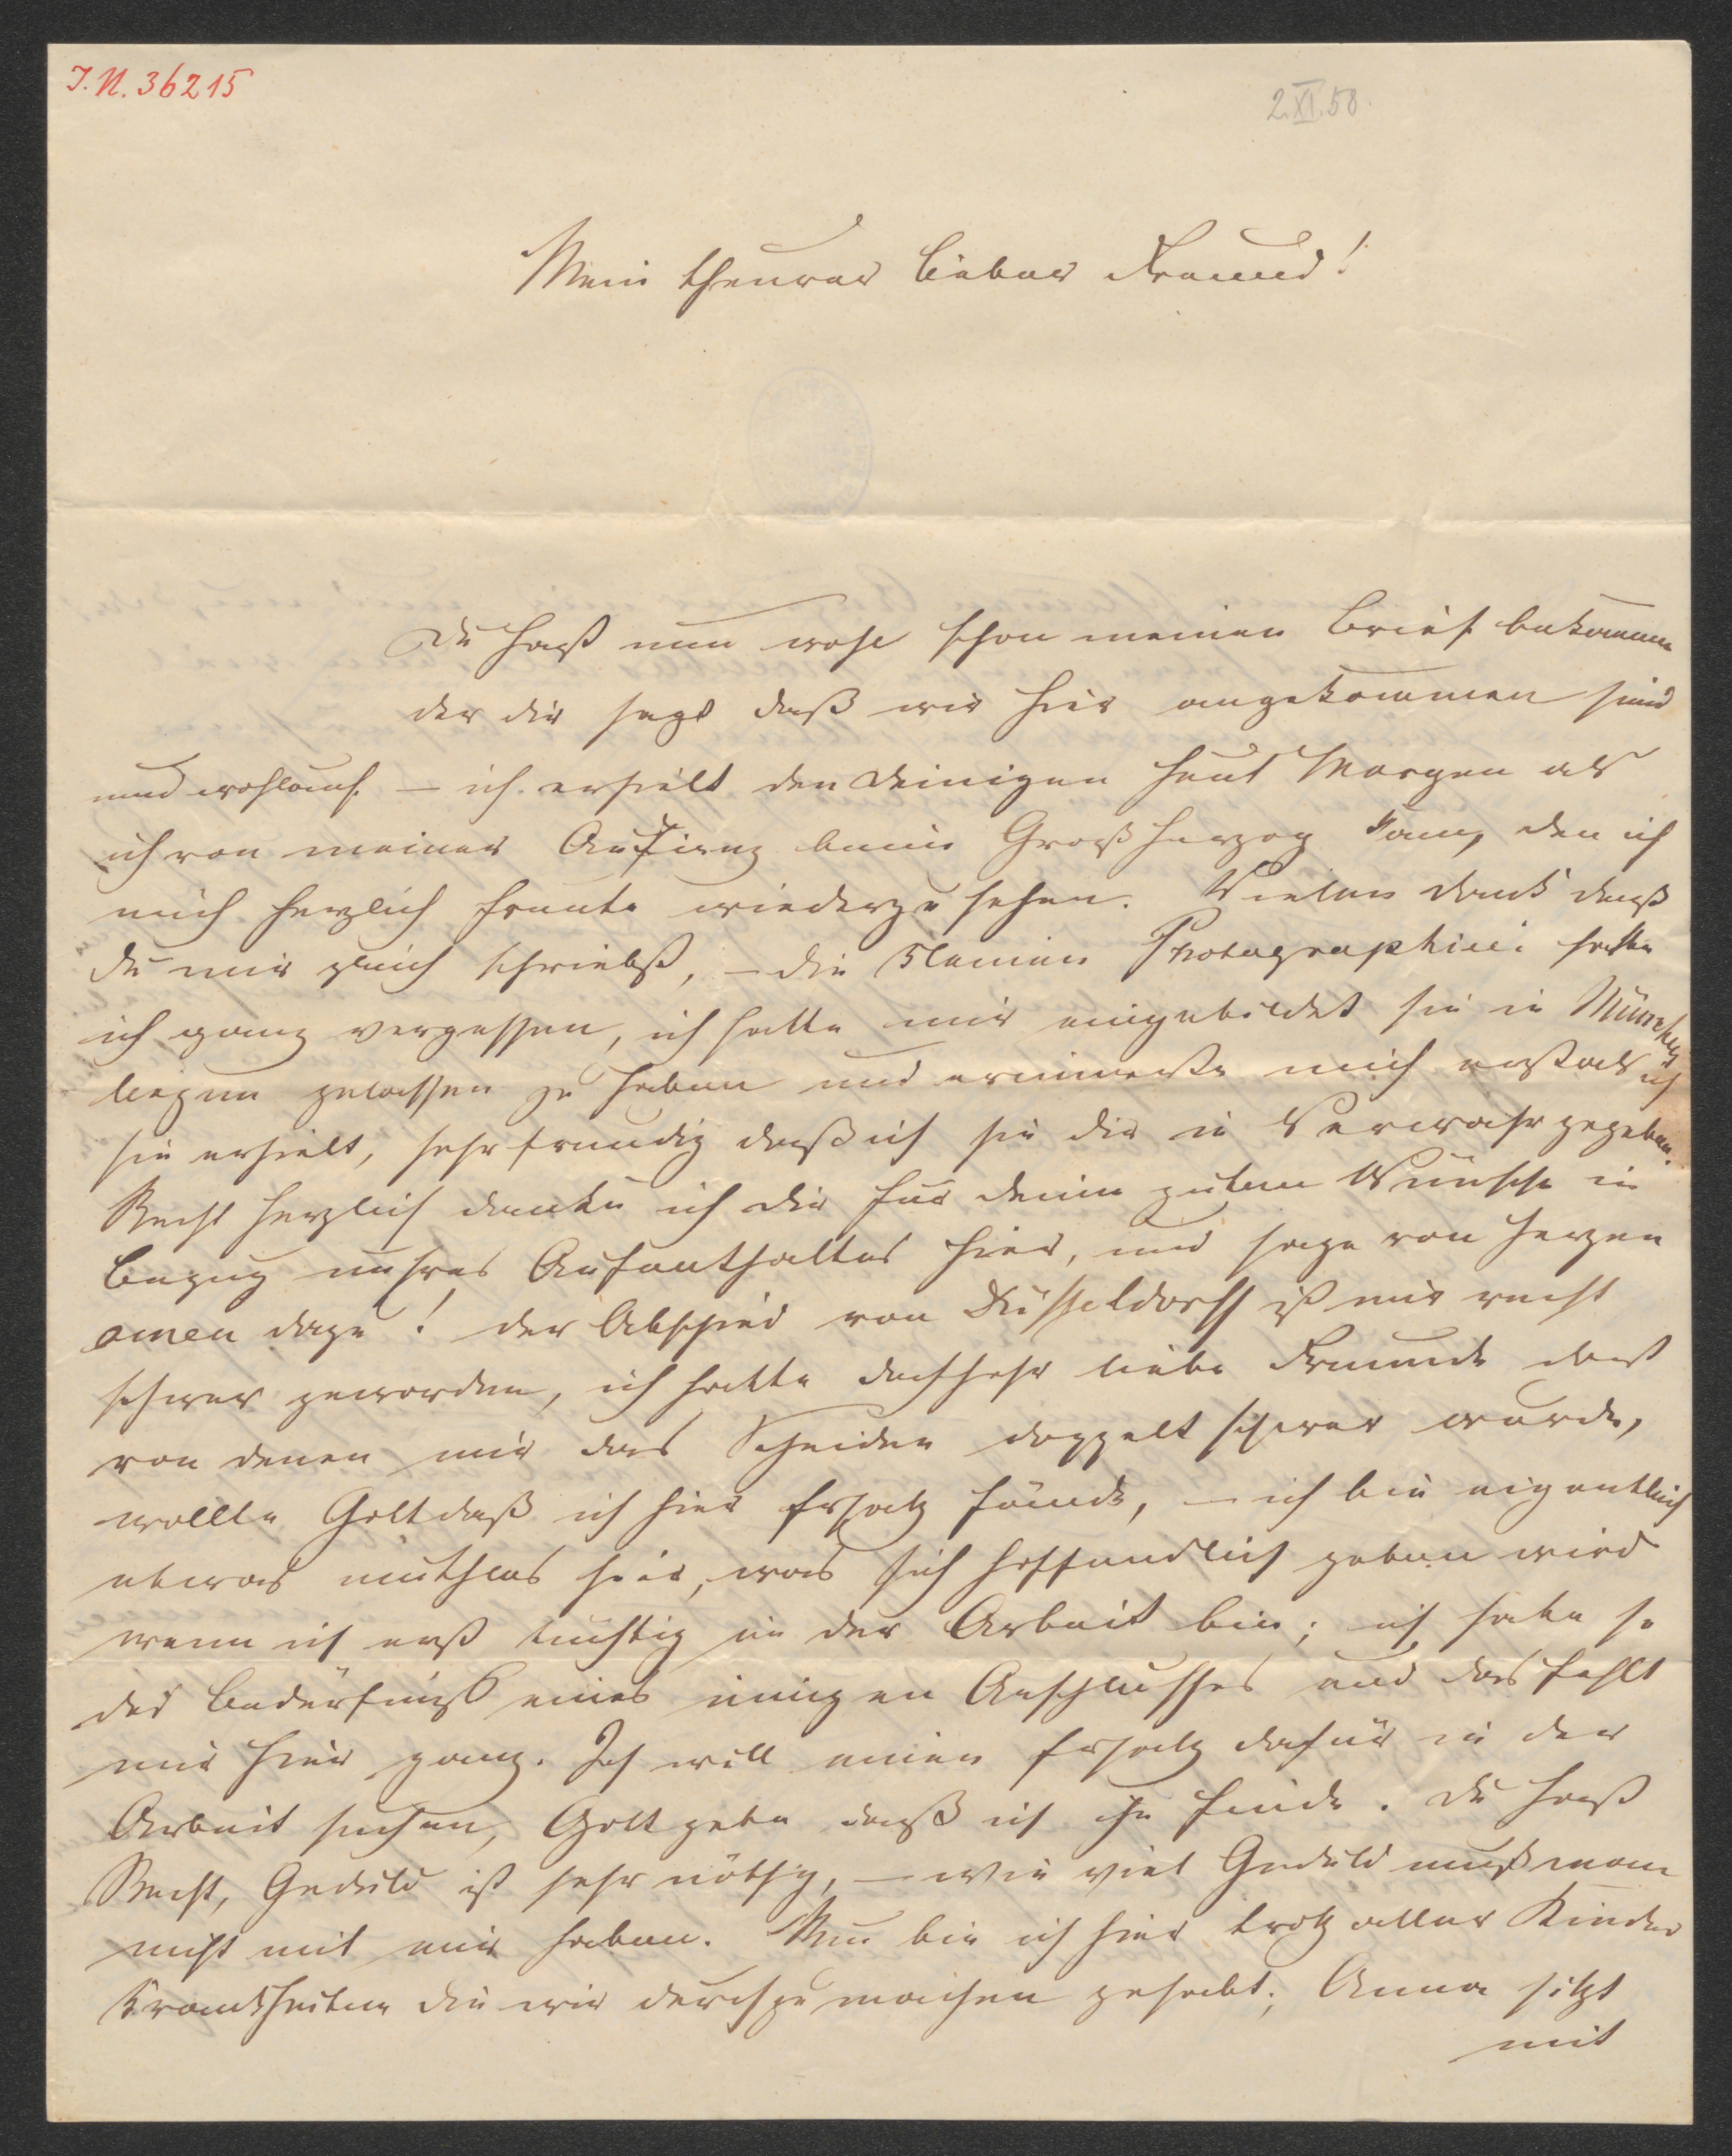 J. N. 36215
2.XI.58.
Mein theurer lieber Freund!
Du hast nun wohl schon meinen Brief bekommen
der dir sagt daß wir hier angekommen sind
und wohlauf. — ich erhielt den Deinigen heut Morgen als
ich von meiner Audienz beim Großherzog kam, den ich
mich herzlich freute wiederzusehen. Vielen Dank daß
du mir gleich schriebst, — die kleinen Photographien hatte
ich ganz vergessen, ich hatte mir eingebildet sie in München
liegen gelassen zu haben und erinnerte mich erst als ich
sie erhielt, sehr freudig daß ich sie dir in Verwahr gegeben.
Recht herzlich danke ich dir für deine guten Wünsche in
Bezug unsres Aufenthaltes hier, und sage von Herzen
amen dazu! der Abschied von Düsseldorff ist mir recht
schwer geworden, ich hatte doch sehr liebe Freunde dort
von denen mir das Scheiden doppelt schwer wurde,
wollte Gott daß ich hier Ersatz fände, — ich bin eigentlich
etwas muthlos hier, was sich hoffendlich geben wird
wenn ich erst tüchtig in der Arbeit bin; ich habe so
das Bedürfniß eines innigen Anschlusses und das fehlt
mir hier ganz. Ich will einen Ersatz dafür in der
Arbeit suchen, Gott gebe daß ich ihn finde. Du hast
Recht, Geduld ist sehr nöthig, — wie viel Geduld muß man
nicht mit mir haben. Nun bin ich hier trotz aller Kinder
Krankheiten die wir durchzumachen gehabt; Anna sitzt
mit